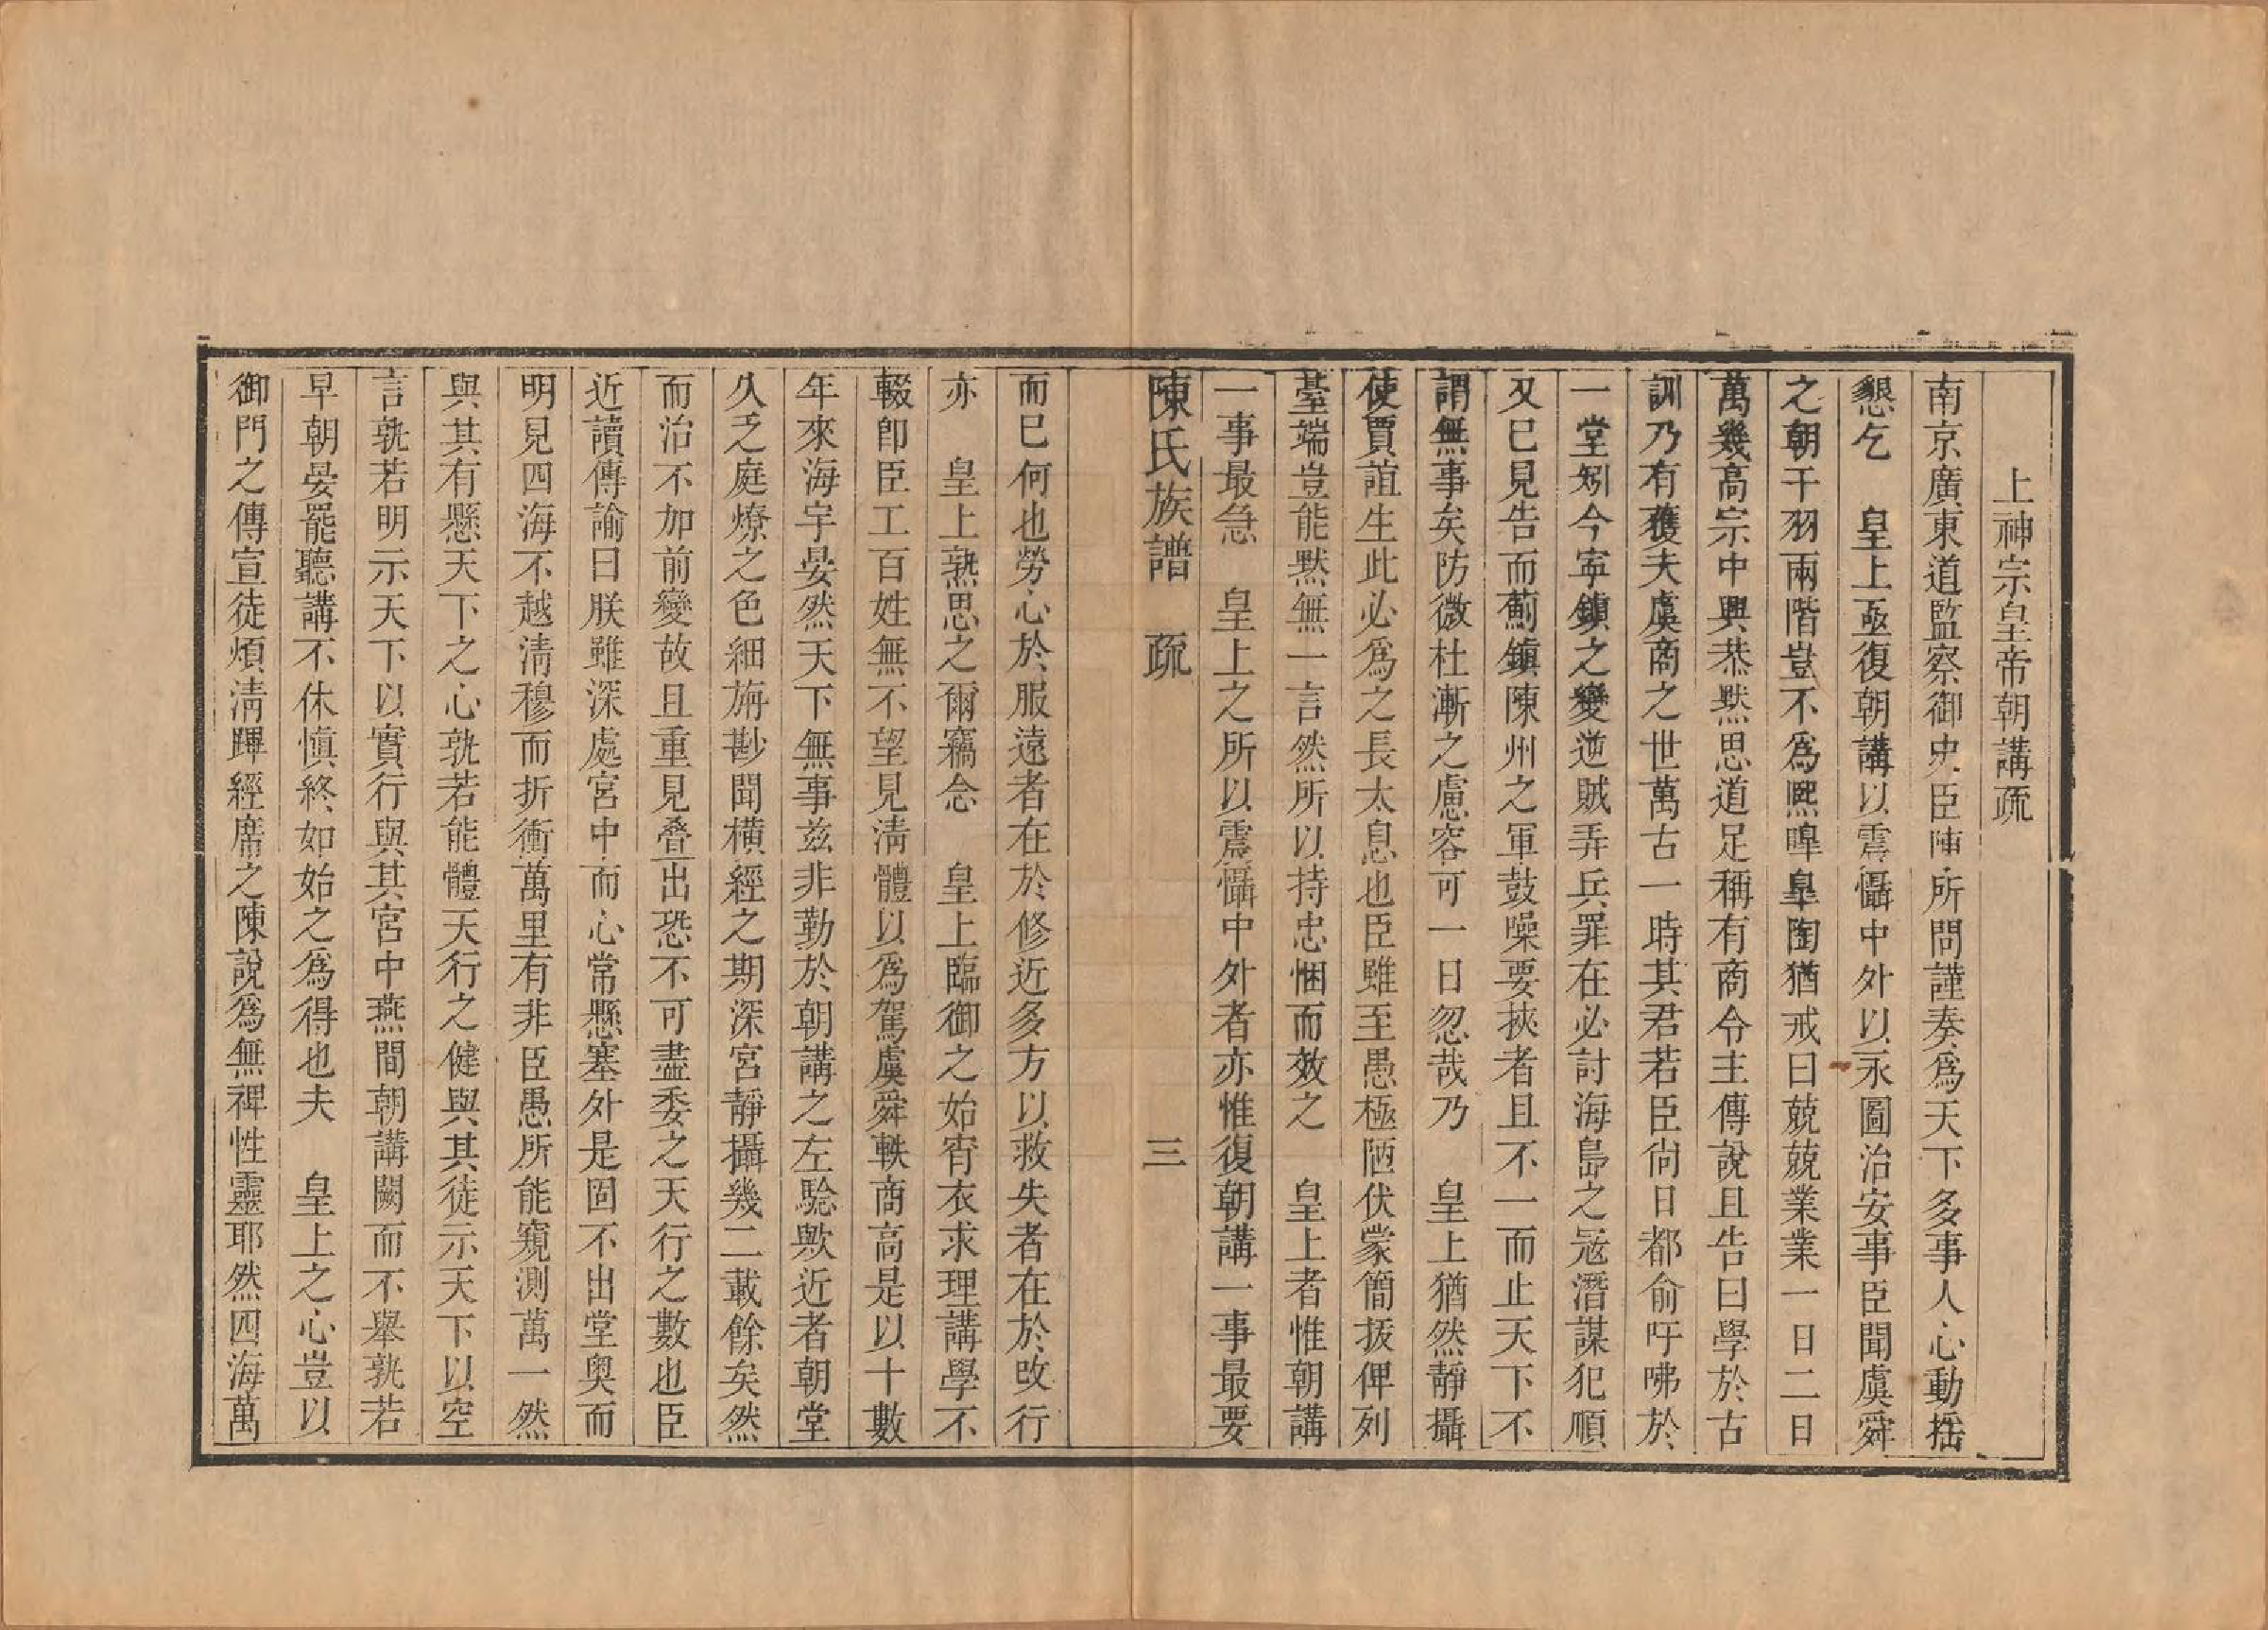 上神宗皇帝朝講疏
南京廣東道監察御史臣陳所問謹奏爲天下多事人心動搖
懇乞　皇上亟復朝講以震懾中外以永圖治安事臣聞虞舜
之朝干羽兩階豈不爲熈皥皐陶猶戒曰兢兢業業一日二日
萬幾高宗中興恭默思道足稱有商令主傳說且告曰學於古
訓乃有獲夫虞商之世萬古一時其君若臣尙日都俞吁咈於
一堂矧今寧鎭之變逆賊弄兵罪在必討海島之冦潛謀犯順
又已見告而薊鎭陳州之軍鼓噪要挾者且不一而止天下不
謂無事矣防微杜漸之慮容可一日忽哉乃　皇上猶然靜攝
使賈誼生此必爲之長太息也臣雖至愚極陋伏蒙簡拔俾列
臺端豈能默無一言然所以持忠悃而效之　皇上者惟朝講
一事最急　皇上之所以震懾中外者亦惟復朝講一事最要
陳氏族譜　疏　三
而已何也勞心於服遠者在於修近多方以救失者在於改行
亦　皇上熟思之爾竊念　皇上臨御之始宵衣求理講學不
輟卽臣工百姓無不望見淸體以爲駕虞舜軼商高是以十數
年來海宇晏然天下無事兹非勤於朝講之左驗歟近者朝堂
久乏庭燎之色細旃尠聞橫經之期深宮靜攝幾二載餘矣然
而治不加前變故且重見叠出恐不可盡委之天行之數也臣
近讀傳諭曰朕雖深處宮中而心常懸塞外是固不出堂奧而
明見四海不越淸穆而折衝萬里有非臣愚所能窺測萬一然
與其有懸天下之心孰若能體天行之健與其徒示天下以空
言孰若明示天下以實行與其宮中燕間朝講闕而不舉孰若
早朝晏罷聽講不休愼終如始之爲得也夫　皇上之心豈以
御門之傳宣徒煩淸蹕經席之陳說爲無裨性靈耶然四海萬